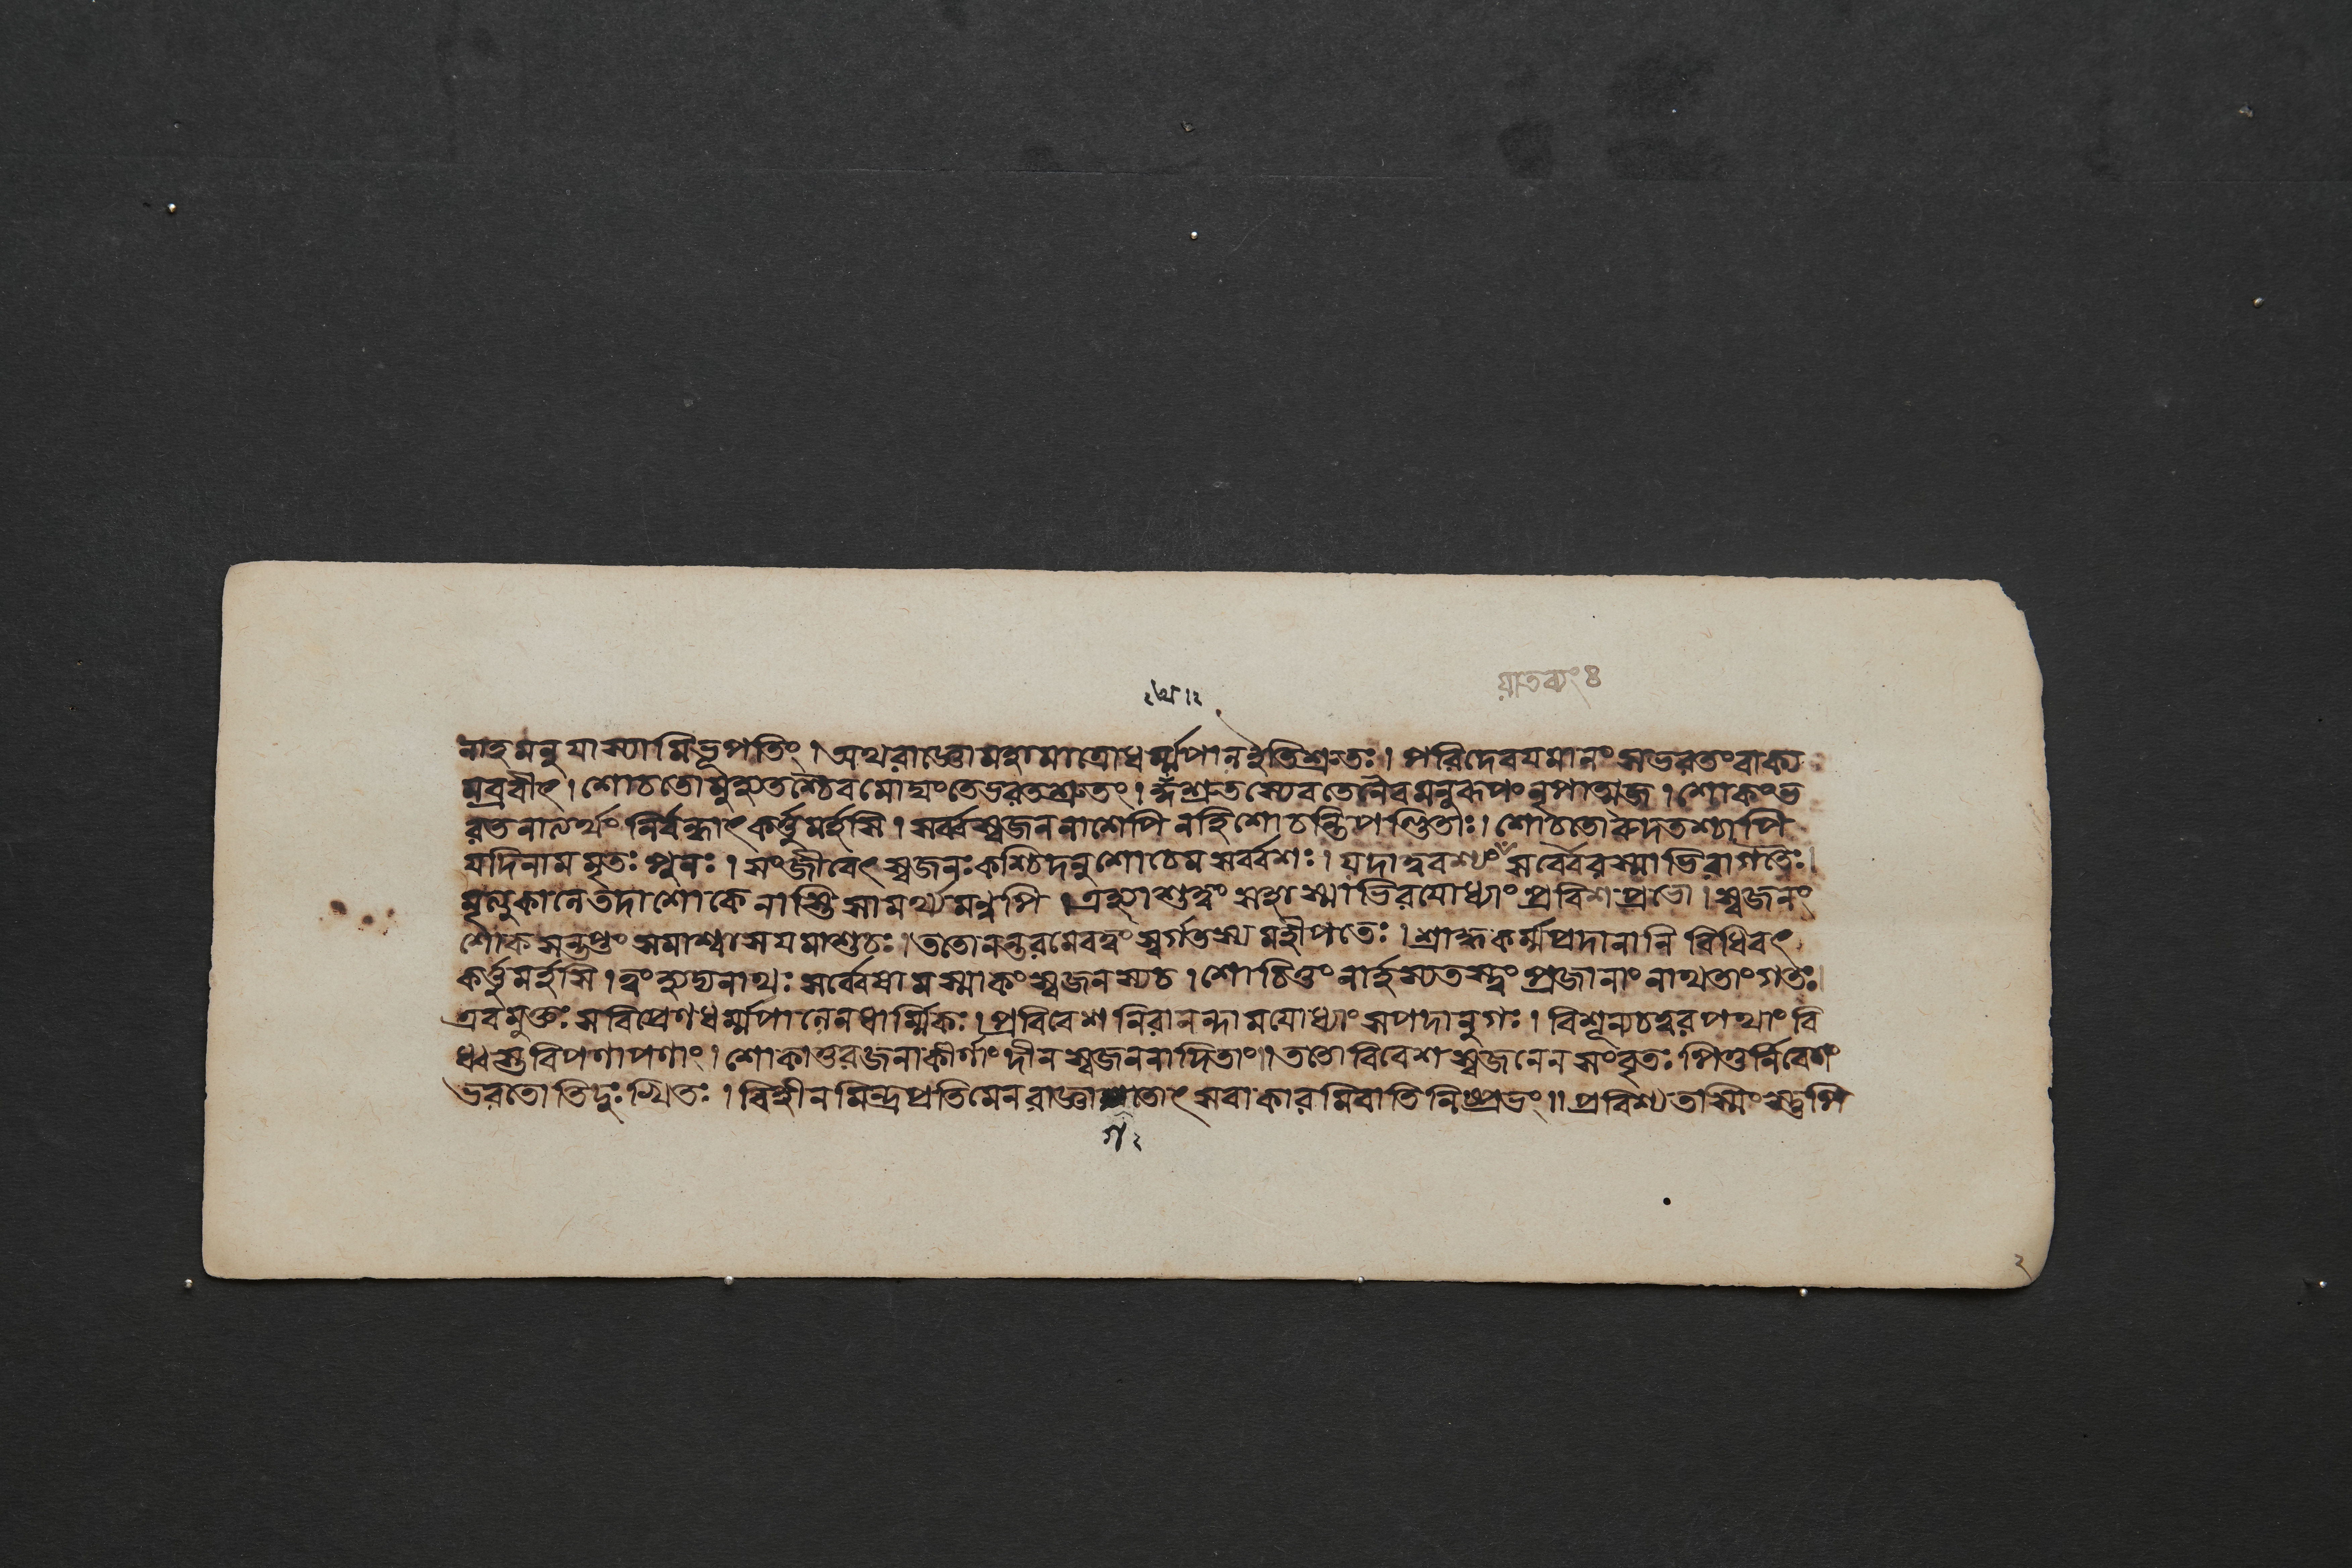 যাতব্যং ৪
নাহমনুযাস্যামিভূপতিং। অথরাজ্ঞোমহামাত্রোধর্ম্মপালইতিশ্রুতঃ। পরিদেবযমানং সভরতংবাক্য
মব্রবীৎ। শোচতোমুহ্যতশ্চৈবমোঘংতেভরতশ্রুতং। শ্রুতস্যৈবতেনৈবমনুরূপংনৃপাত্মজ। শোকংভ
রতনালর্থং নির্বন্ধাৎকর্ত্তুমর্হসি। সর্ব্বস্বজননাশেপি নহিশোচন্তিপণ্ডিতাঃ। শোচতোরুদতশ্চাপি
যদিনামমৃতঃ পুনঃ। সংজীবেৎস্বজনঃকশ্চিদনুশোচেমসর্ব্বশঃ। যদাত্ববশ্যং সর্ব্বৈরস্মাভিরাগতৈঃ।
মৃত্যুকালেতদাশোকে নাস্তিসামর্থ্যমণ্বপি। এহ্যাশুত্বং সহাস্মাভিরযোধ্যাং প্রবিশপ্রভো। স্বজনং
শোকসন্তপ্তং সমাশ্বাসযমাশুচঃ। ততোনন্তরমেবত্বং স্বর্গতস্য মহীপতেঃ। শ্রাদ্ধকর্ম্মপ্রদানানি বিধিবৎ
কর্ত্তুমর্হসি। ত্বংহ্যদ্যনাথঃ সর্ব্বেষামস্মাকংস্বজনস্যচ। শোচিতুং নার্হস্যতস্ত্বং প্রজানাংনাথতাংগতঃ।
এবমুক্তঃ সবিপ্রেণধর্ম্মপালেনধার্ম্মিকঃ। প্রবিবেশনিরানন্দামযোধ্যাং সপদানুগঃ। বিশূন্যচত্বরপথাং বি
ধ্বস্তবিপণাপণাং। শোকাতুরজনাকীর্ণাং দীনস্বজননাদিতাং।। ততোবিবেশস্বজনেন সংবৃতঃ পিতুর্নিবেশং
ভরতোতিদুঃখিতঃ। বিহীনমিন্দ্রপ্রতিমেনরাজ্ঞা গতোৎসবাকারমিবাতিনিষ্প্রভং।। প্রবিশ্যতস্মিংস্তুপি
গ ২
২